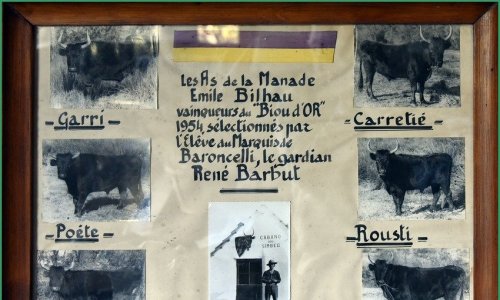 Les As de la Manade
Emile Bilhau
vainqueurs du "Biou d'OR"
1954, selectionnés par
l'Elève du Marquis de
Baroncelli, le gardian
René Barbut
Garri
Carretié
Poéte
Rousti
CABANO
SIMBEU